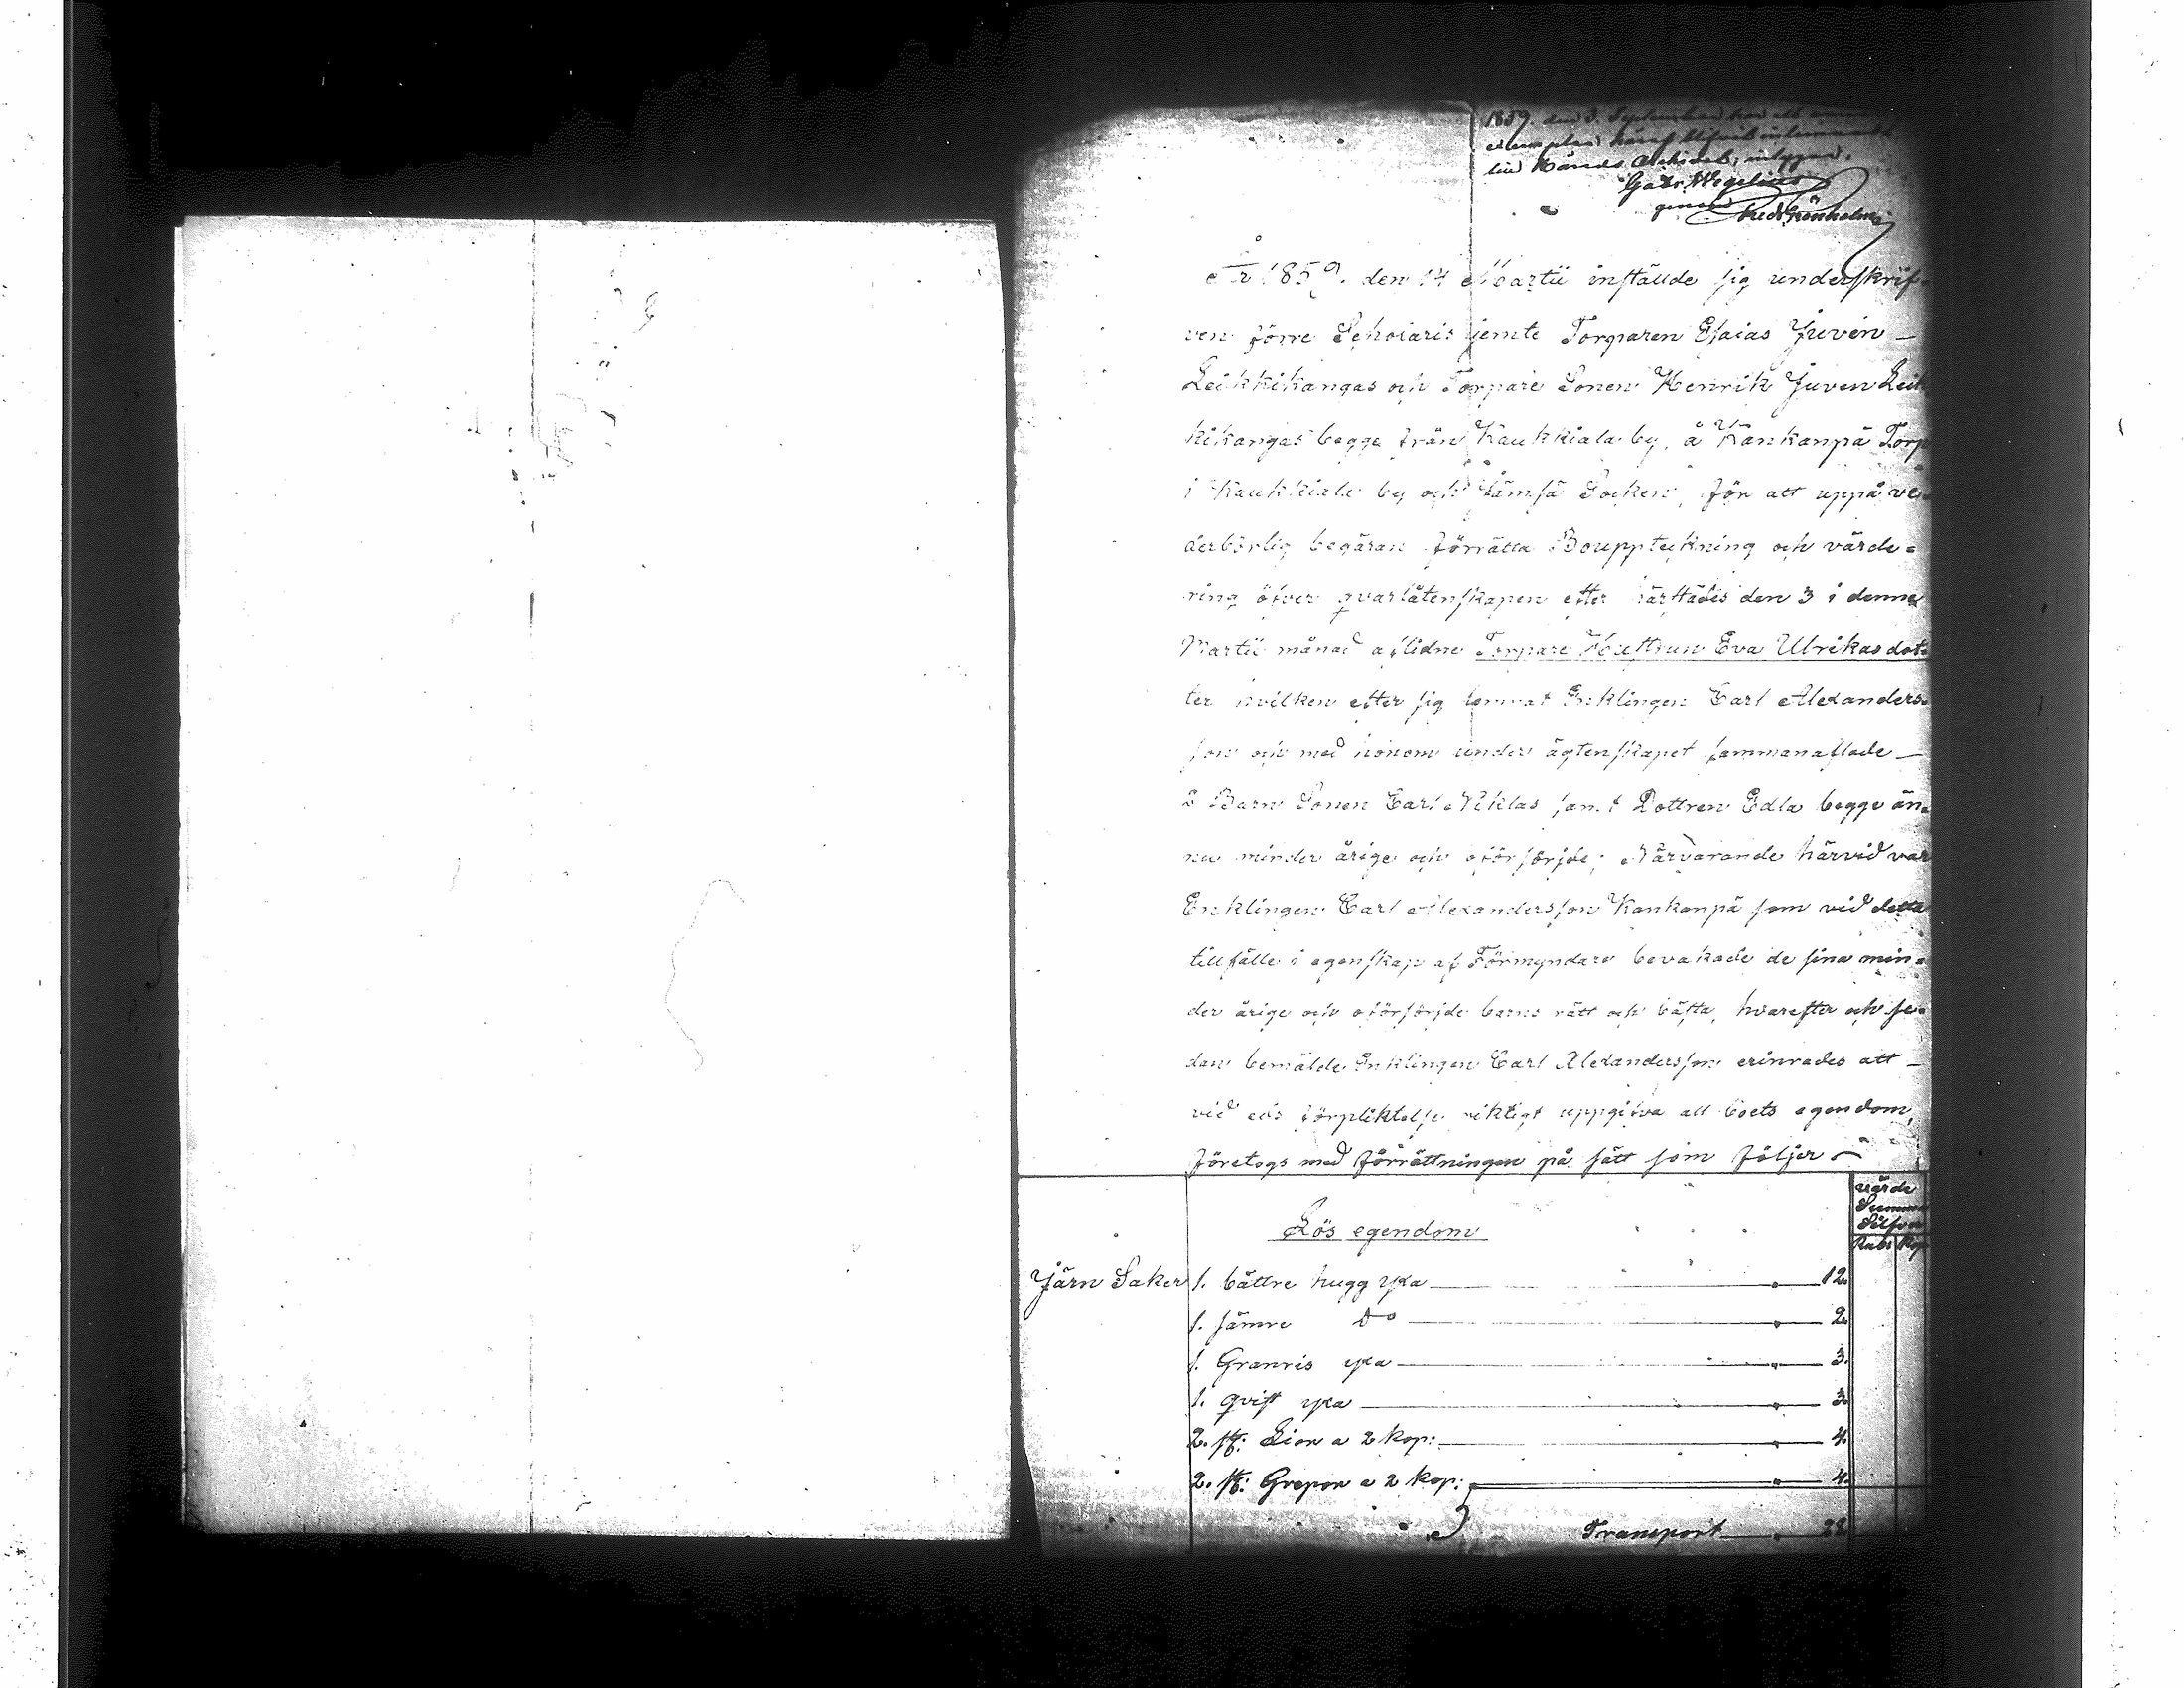 1859. den 3. September har ett
exemplar häraf blifvit inlemnadt
till Härads Archivet, intygar.
Gabr. Wegelius
genom Fred. Grönholm
År 1859. den 14 Martii instälde sig underskrif-
ven förre Scholaris jemte Torparen Esaias Juvén
Leikkikangas och Torpare Sonen Henrik Juven Leik
kikangas begge från Kaukkiala by, å Kankanpä Torp
i Kaukkiala by och Jämsä Socken, för att uppå ve-
derbörlig begäran förrätta Bouppteckning och värde=
ring öfver qvarlåtenskapen efter härstädes den 3 i denne
Martii månad aflidne Torpare Hustrun Eva Ulrikas dot=
ter hvilken efter sig lemnat Enklingen Carl Alexanders=
son och med honom under ägtenskapet sammanaflade
2 Barn Sonen Carl Niklas samt Dottren Edla begge än=
nu minder årige och oförsörjde; Närvarande härvid var
Enklingen Carl Alexandersson Kankanpä som vid detta
tillfälle i egenskap af Förmyndare bevakade de sina min=
der årige och oförsörjde barns rätt och bästa, hvarefter och se=
dan bemälde Enklingen Carl Alexandersson erinrades att
vid eds förpliktelse riktigt uppgifva all boets egendom,
företogs med förrättningen på sätt som följer
värde
Summa
Silfver
Lös egendom
Rub: Kop
Järn Saker 1. bättre hugg yxa " 12.
1. sämre Do " 2.
1. Granris yxa " 3.
1. qvist yxa " 3.
2. st: Lior a 2 kop: " 4.
2. st: Grepor a 2 kop: " 4.
Transport " 28